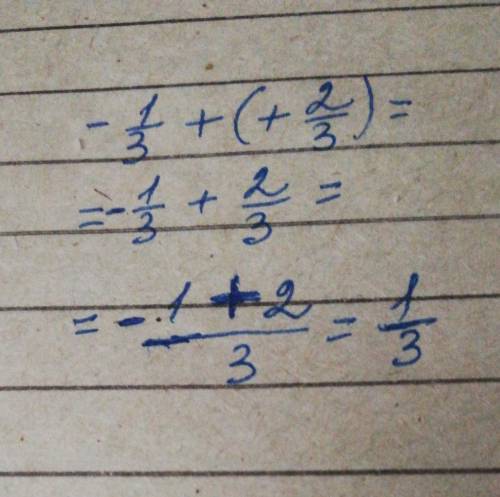 - 1/3 + (+ 2/3) =
= - 1/3 + 2/3 =
= (- 1 + 2)/3 = 1/3